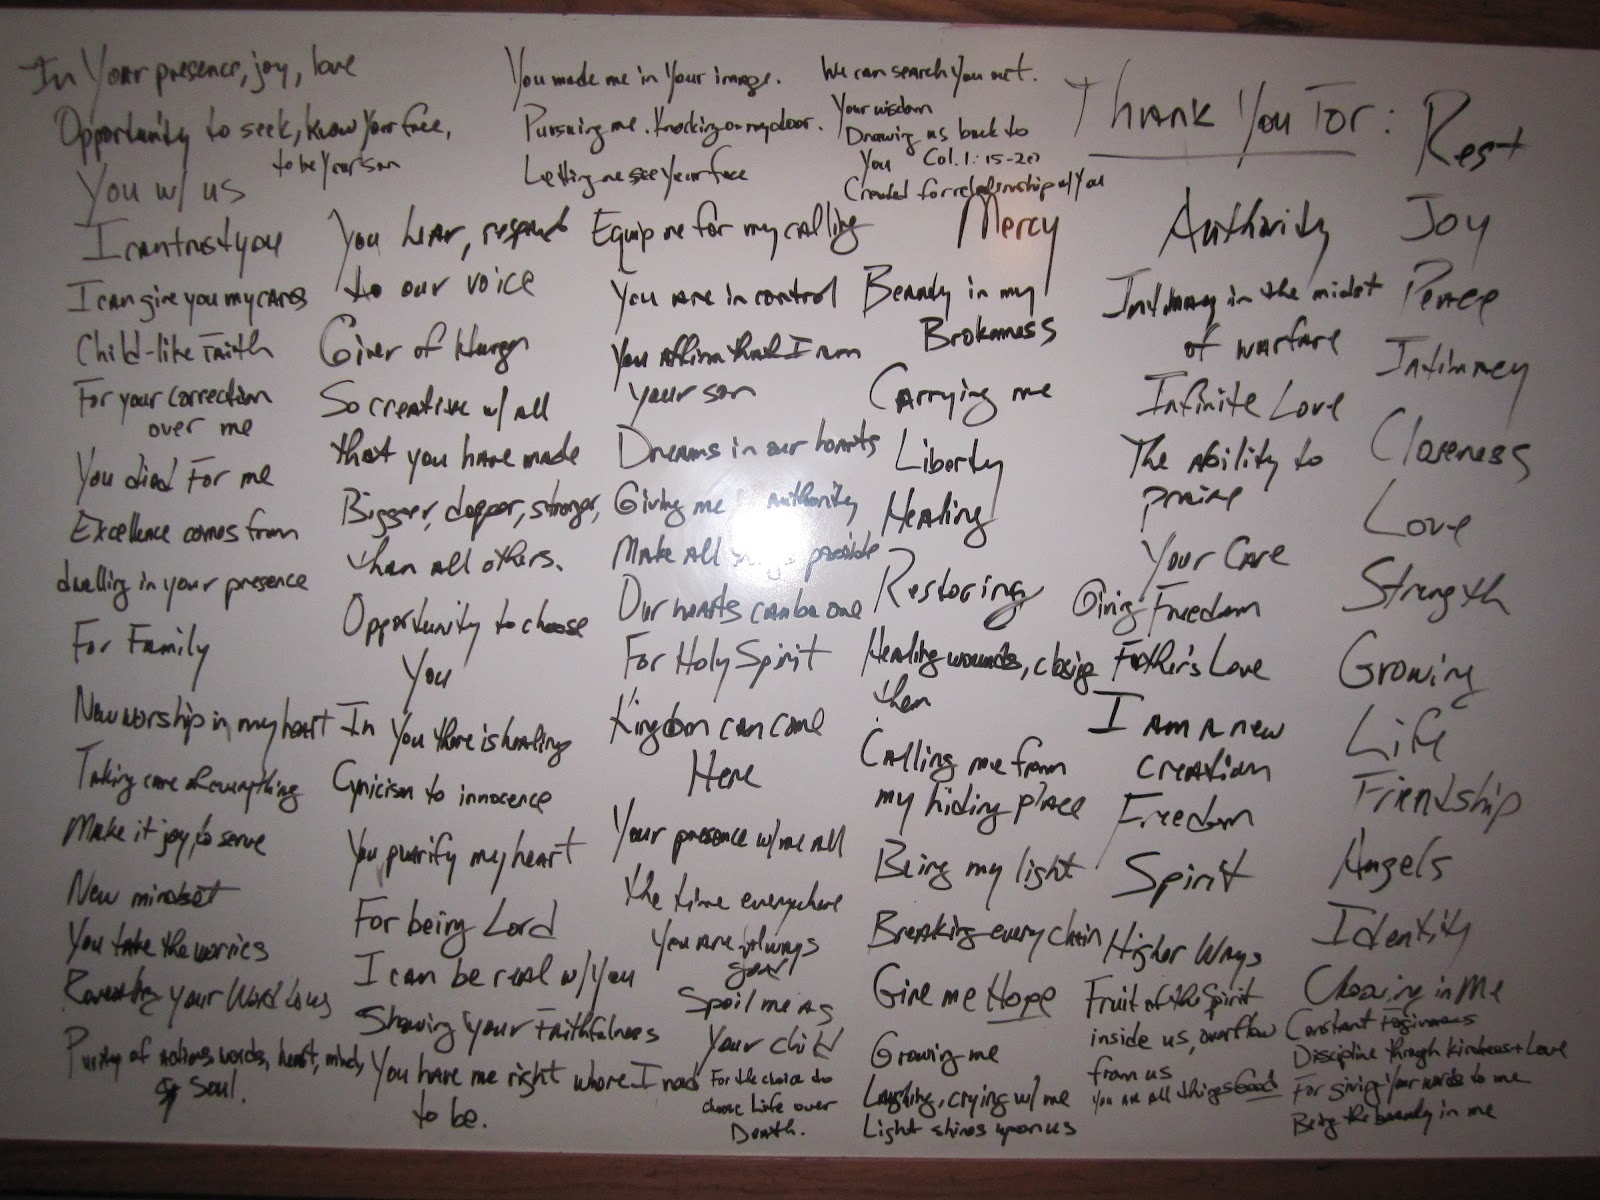 Thank You For:
Rest
Joy
Peace
Intimacy
Closeness
Love
Strength
Growing
Life
Friendship
Angels
Identity
in Me
Constant Forgiveness
Discipline through kindness + Love
For giving Your words to me
Being the beauty in me
Authority
Intimacy in the midst
of warfare
Infinite Love
The Ability to
praise
Your Care
Giving Freedom
Father's Love
I am a new
creation
Freedom
Spirit
Higher Ways
Fruit of the Spirit
inside us, overflow
from us
You are all things Good
We can search You out.
Your wisdom
Drawing us back to
You Col. 1:15-20
Created for relationship w/ You
Mercy
Beauty in my
Brokenness
Carrying me
Liberty
Healing
Restoring
Healing wounds, closing
them
Calling me from
my hiding place
Being my light
Breaking every chain
Give me Hope
Growing me
Laughing, crying w/ me
Light shines upon us
You made me in Your image.
Pursuing me. Knocking on my door.
Letting me see Your face
Equip me for my calling
You are in control
You affirm that I am
your son
Dreams in our hearts
Giving me authority
Make all possible
Our hearts can be one
For Holy Spirit
Kingdom can come
Here
Your presence w/ me all
the time everywhere
You are always
good
Spoil me as
Your child
For the choice to
choose Life over
Death.
In Your presence, joy, love
Opportunity to seek, know Your face,
to be Your son
You w/ us
You hear, respond
to our voice
Giver of Hunger
So creative w/ all
that you have made
Bigger, deeper, stronger,
than all others.
Opportunity to choose
You
In You there is healing
Cynicism to innocence
You purify my heart
For being Lord
I can be real w/ You
Showing Your Faithfulness
You have me right where I need
to be.
I can trust you
I can give you my cares
Child-like Faith
For your correction
over me
You died For me
Excellence comes from
dwelling in your presence
For Family
New worship in my heart
Taking care of everything
Make it joy to serve
New mindset
You take the worries
your Word to us
Purity of actions, words, heart, mind,
Soul.